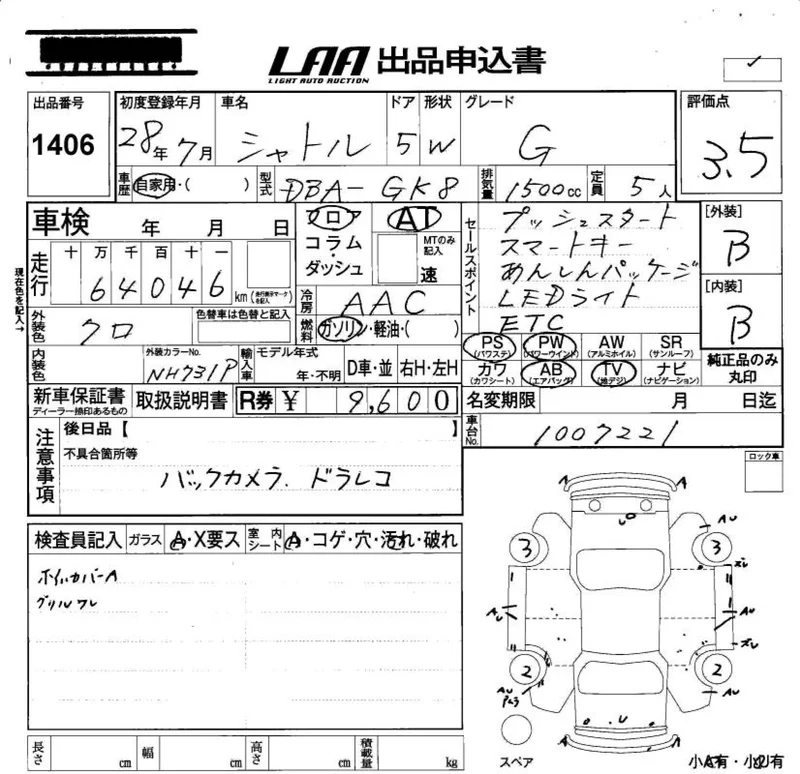 LAA 出品申込書
LIGHT AUTO AUCTION
出品番号 初度登録年月 車名 ドア 形状 グレード 評価点
1406 28年7月 シャトル 5 W G 3.5
車歴 自家用・( ) 型式 DBA-GK8 排気量 1500cc 定員 5人
車検 年 月 日 フロア AT セールスポイント プッシュスタート [外装]
コラム・ MTのみ記入 スマートキー B
走行 十 万 千 百 十 一 ダッシュ 速 あんしんパッケージ
64046 km (走行表示マークを記入) 冷房 AAC LEDライト [内装]
現在色を記入→
外装色 クロ 色替車は色替と記入 燃料 ガソリン・軽油・( ) ETC B
内装色 外装カラーNo. NH731P 輸入車 モデル年式 年・不明 D車・並 右H・左H
PS (パワステ) PW (パワーウインド) AW (アルミホイル) SR (サンルーフ) 純正品のみ
カワ (カワシート) AB (エアバッグ) TV (地デジ) ナビ (ナビゲーション) 丸印
新車保証書 ディーラー捺印あるもの 取扱説明書 R券 ¥ 9,600 名変期限 月 日迄
車台No. 1007221
注意事項 後日品【 】
不具合箇所等
バックカメラ. ドラレコ
ロック車
検査員記入 ガラス A・X要ス 室内シート A・コゲ・穴・汚れ・破れ
ホイルカバーA
グリルワレ
A A
U
AU
3 3
ズレ
AU AU
ズレ
2 2
AU AU
U
A A
スペア
長さ cm 幅 cm 高さ cm 積載量 kg
小A有・小U有